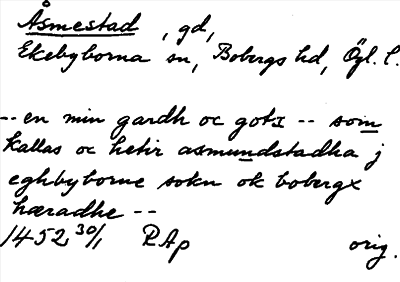 Åsmestad, gd,
Ekebyborna sn, Bobergs hd, Ögl. l.
-- en min gardh oc gotz -- som
kallas oc hetir asmundstadha j
eghbyborne sokn ok bobergx
hæradhe --
1452 30/1 RAp orig.